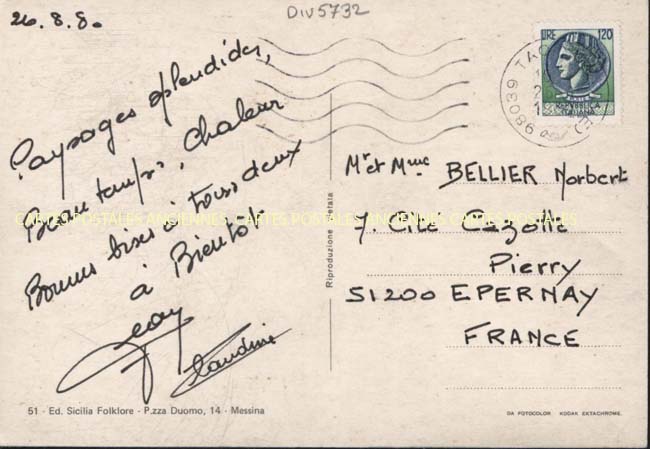 26.8.80
DIV5732
Paysages splendides,
Beau temps, chaleur
Bonnes bises à tous deux
à Bientôt
Jeay
Claudine
LIRE 120
REPUBBLICA
ITALIANA
98039 TAO
(ME)
Mr et Mme BELLIER Norbert
7. Cité Cazotte
Pierry
51200 EPERNAY
FRANCE
CARTES POSTALES ANCIENNES - CARTES POSTALES ANCIENNES CARTES POSTALES ANCIENNES
Riproduzione vietata
51 - Ed. Sicilia Folklore - P.zza Duomo, 14 - Messina
DA FOTOCOLOR KODAK EKTACHROME.